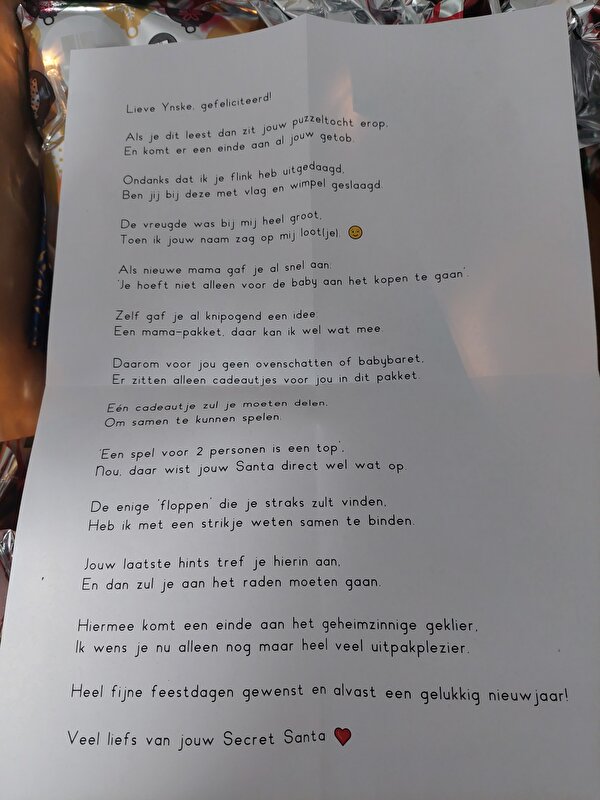 Lieve Ynske, gefeliciteerd!
Als je dit leest dan zit jouw puzzeltocht erop,
En komt er een einde aan al jouw getob.
Ondanks dat ik je flink heb uitgedaagd,
Ben jij bij deze met vlag en wimpel geslaagd.
De vreugde was bij mij heel groot,
Toen ik jouw naam zag op mij loot(je). 😉
Als nieuwe mama gaf je al snel aan:
'Je hoeft niet alleen voor de baby aan het kopen te gaan'.
Zelf gaf je al knipogend een idee:
Een mama-pakket, daar kan ik wel wat mee.
Daarom voor jou geen ovenschatten of babybaret,
Er zitten alleen cadeautjes voor jou in dit pakket.
Eén cadeautje zul je moeten delen,
Om samen te kunnen spelen.
'Een spel voor 2 personen is een top',
Nou, daar wist jouw Santa direct wel wat op
De enige 'floppen' die je straks zult vinden,
Heb ik met een strikje weten samen te binden.
Jouw laatste hints tref je hierin aan,
En dan zul je aan het raden moeten gaan.
Hiermee komt een einde aan het geheimzinnige geklier,
Ik wens je nu alleen nog maar heel veel uitpakplezier.
Heel fijne feestdagen gewenst en alvast een gelukkig nieuwjaar!
Veel liefs van jouw Secret Santa ❤️